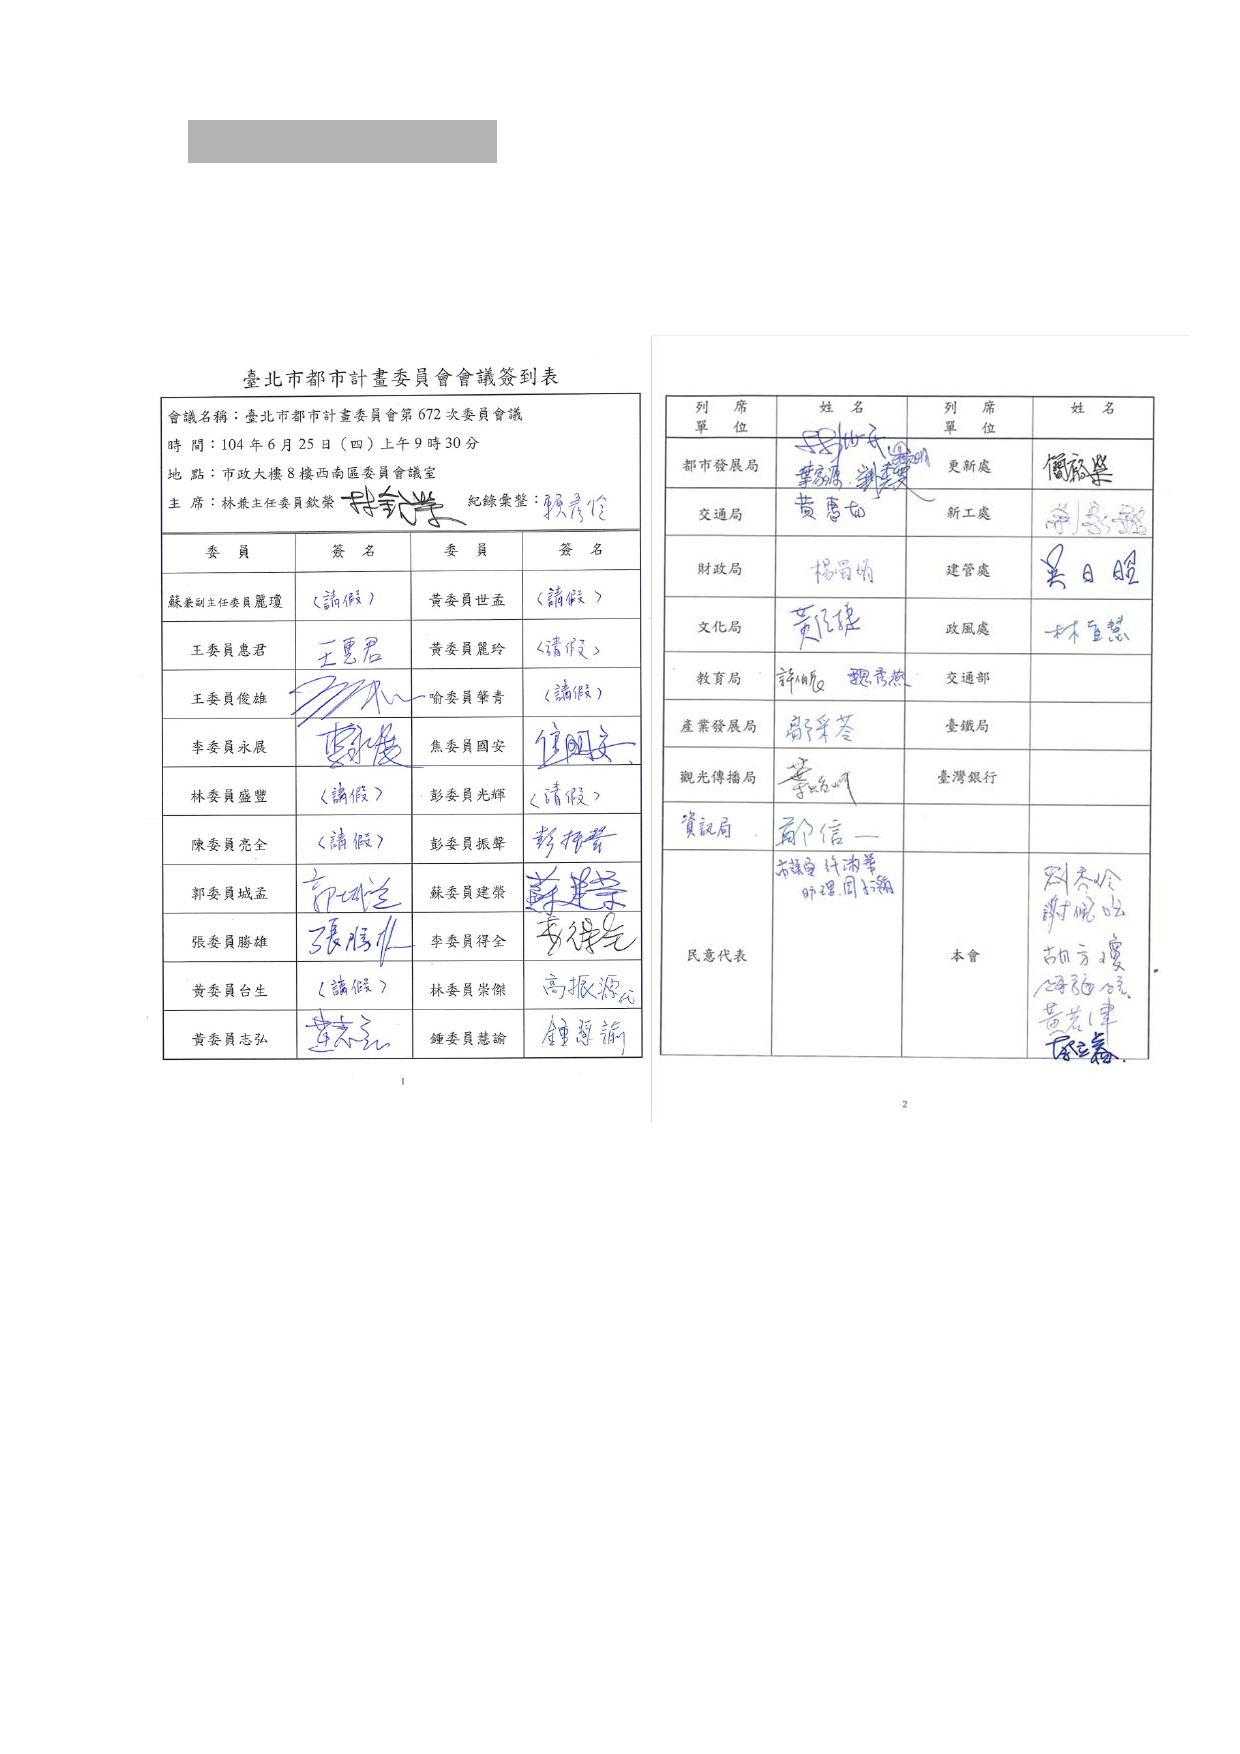 臺北市都市計畫委員會會議簽到表
會議名稱：臺北市都市計畫委員會第 672 次委員會議
時 間：104 年 6 月 25 日（四）上午 9 時 30 分
地 點：市政大樓 8 樓西南區委員會議室
主 席：林兼主任委員欽榮 林欽榮 紀錄彙整：賴彥伶
委 員 簽 名 委 員 簽 名
蘇兼副主任委員麗瓊 （請假） 黃委員世孟 （請假）
王委員惠君 王惠君 黃委員麗玲 （請假）
王委員俊雄 喻委員肇青 （請假）
李委員永展 李永展 焦委員國安 焦國安
林委員盛豐 （請假） 彭委員光輝 （請假）
陳委員亮全 （請假） 彭委員振聲 彭振聲
郭委員城孟 郭城孟 蘇委員建榮 蘇建榮
張委員勝雄 張勝雄 李委員得全 李得全
黃委員台生 （請假） 林委員崇傑 高振源代
黃委員志弘 黃志弘 鍾委員慧諭 鍾慧諭
1
列 席 單 位 姓 名 列 席 單 位 姓 名
都市發展局 葉家源 更新處
交通局 黃惠如 新工處
財政局 建管處 吳日昭
文化局 政風處 林宜慧
教育局 魏秀燕 交通部
產業發展局 鄒采苓 臺鐵局
觀光傳播局 臺灣銀行
資訊局 鄭信一
民意代表 本會
謝佩
胡方瓊
黃若津
2